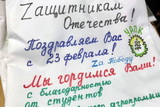 Zащитникам
Отечества!
Поздравляем Вас
с 23 февраля!
Zа Победу
Мы гордимся Вами!
С благодарностью
от студентов